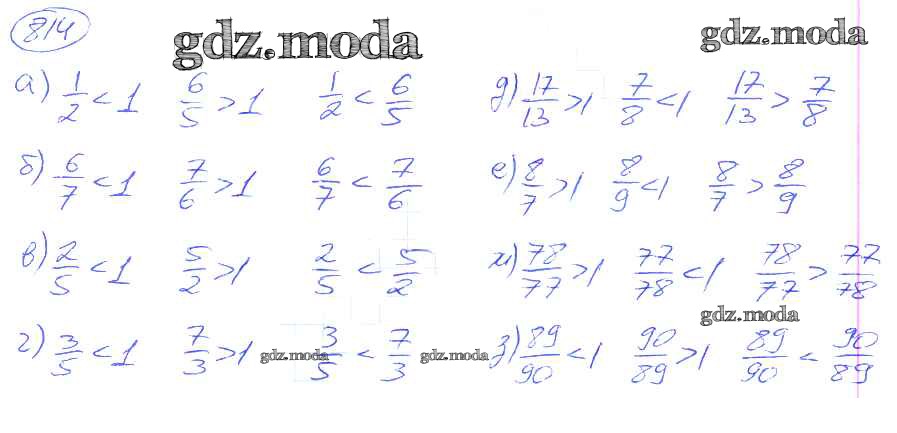 814
gdz.moda
gdz.moda
а) 1/2 < 1 6/5 > 1 1/2 < 6/5
б) 6/7 < 1 7/6 > 1 6/7 < 7/6
в) 2/5 < 1 5/2 > 1 2/5 < 5/2
г) 3/5 < 1 7/3 > 1 3/5 < 7/3
д) 17/13 > 1 7/8 < 1 17/13 > 7/8
е) 8/7 > 1 8/9 < 1 8/7 > 8/9
ж) 78/77 > 1 77/78 < 1 78/77 > 77/78
gdz.moda
з) 89/90 < 1 90/89 > 1 89/90 < 90/89
gdz.moda
gdz.moda